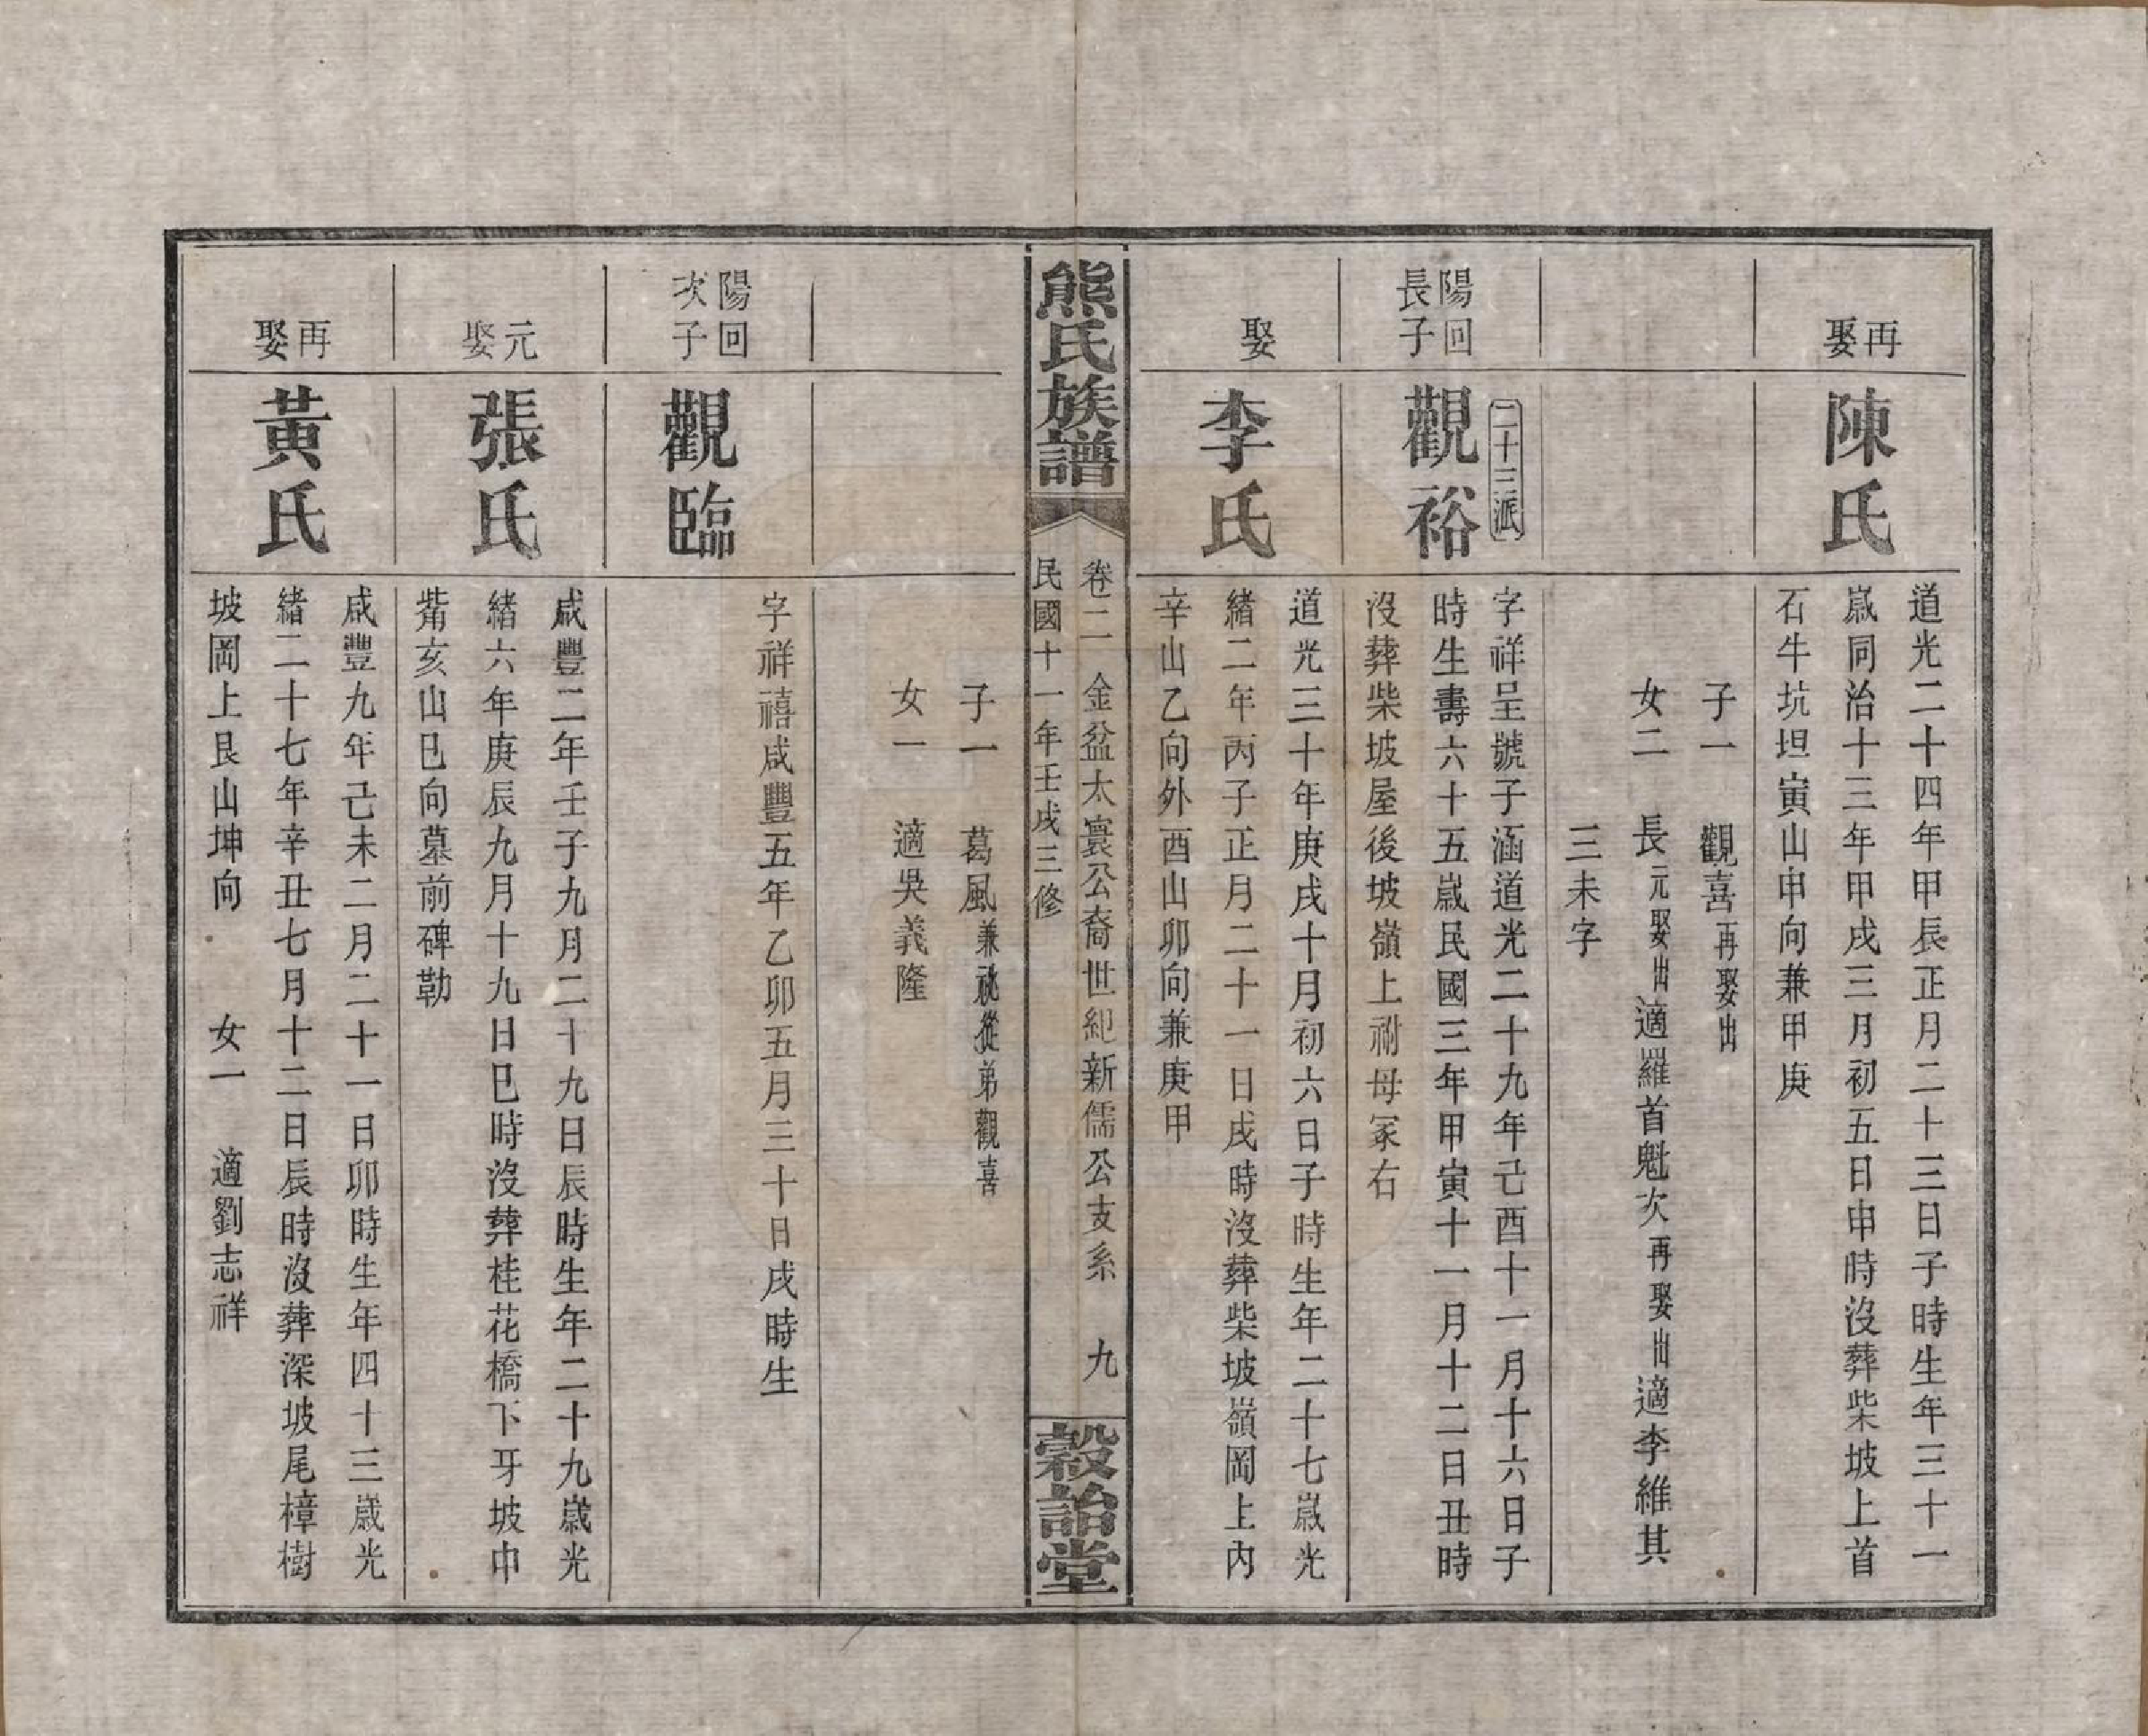 再娶
陳氏
道光二十四年甲辰正月二十三日子時生年三十一
歲同治十三年甲戌三月初五日申時沒葬柴坡上首
石牛坑坦寅山申向兼甲庚
子一 觀喜再娶出
女二 長元娶出適羅首魁次再娶出適李維其
三未字
陽回
長子
二十三派
觀裕
字祥呈號子涵道光二十九年己酉十一月十六日子
時生壽六十五歲民國三年甲寅十一月十二日丑時
沒葬柴坡屋後坡嶺上祔母冢右
娶
李氏
道光三十年庚戌十月初六日子時生年二十七歲光
緒二年丙子正月二十一日戌時沒葬柴坡嶺岡上內
辛山乙向外酉山卯向兼庚甲
熊氏族譜
卷二 金盆太寰公裔世紀新儒公支系 九
民國十一年壬戌三修
穀詒堂
子一 葛風兼祧從弟觀喜
女一 適吳義隆
陽回
次子
觀臨
字祥禧咸豐五年乙卯五月三十日戌時生
元娶
張氏
咸豐二年壬子九月二十九日辰時生年二十九歲光
緒六年庚辰九月十九日巳時沒葬桂花橋下牙坡巾
觜亥山巳向墓前碑勒
再娶
黃氏
咸豐九年己未二月二十一日卯時生年四十三歲光
緒二十七年辛丑七月十二日辰時沒葬深坡尾樟樹
坡岡上艮山坤向 女一 適劉志祥